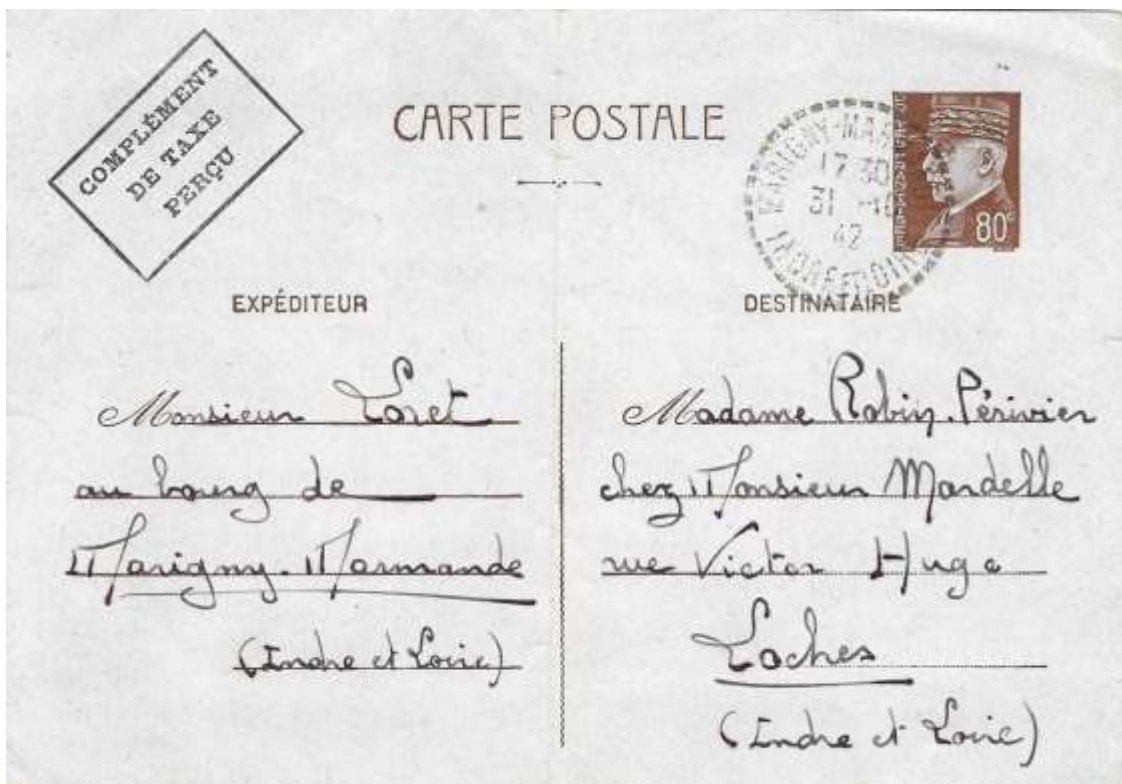 COMPLÉMENT
DE TAXE
PERÇU
CARTE POSTALE
MARIGNY-MAR
17 30
31 -10
42
INDRE ET LOIRE
80c
EXPÉDITEUR
Monsieur Loret
au bourg de
Marigny-Marmande
(Indre et Loire)
DESTINATAIRE
Madame Robin-Périvier
chez Monsieur Mardelle
rue Victor Hugo
Loches
(Indre et Loire)